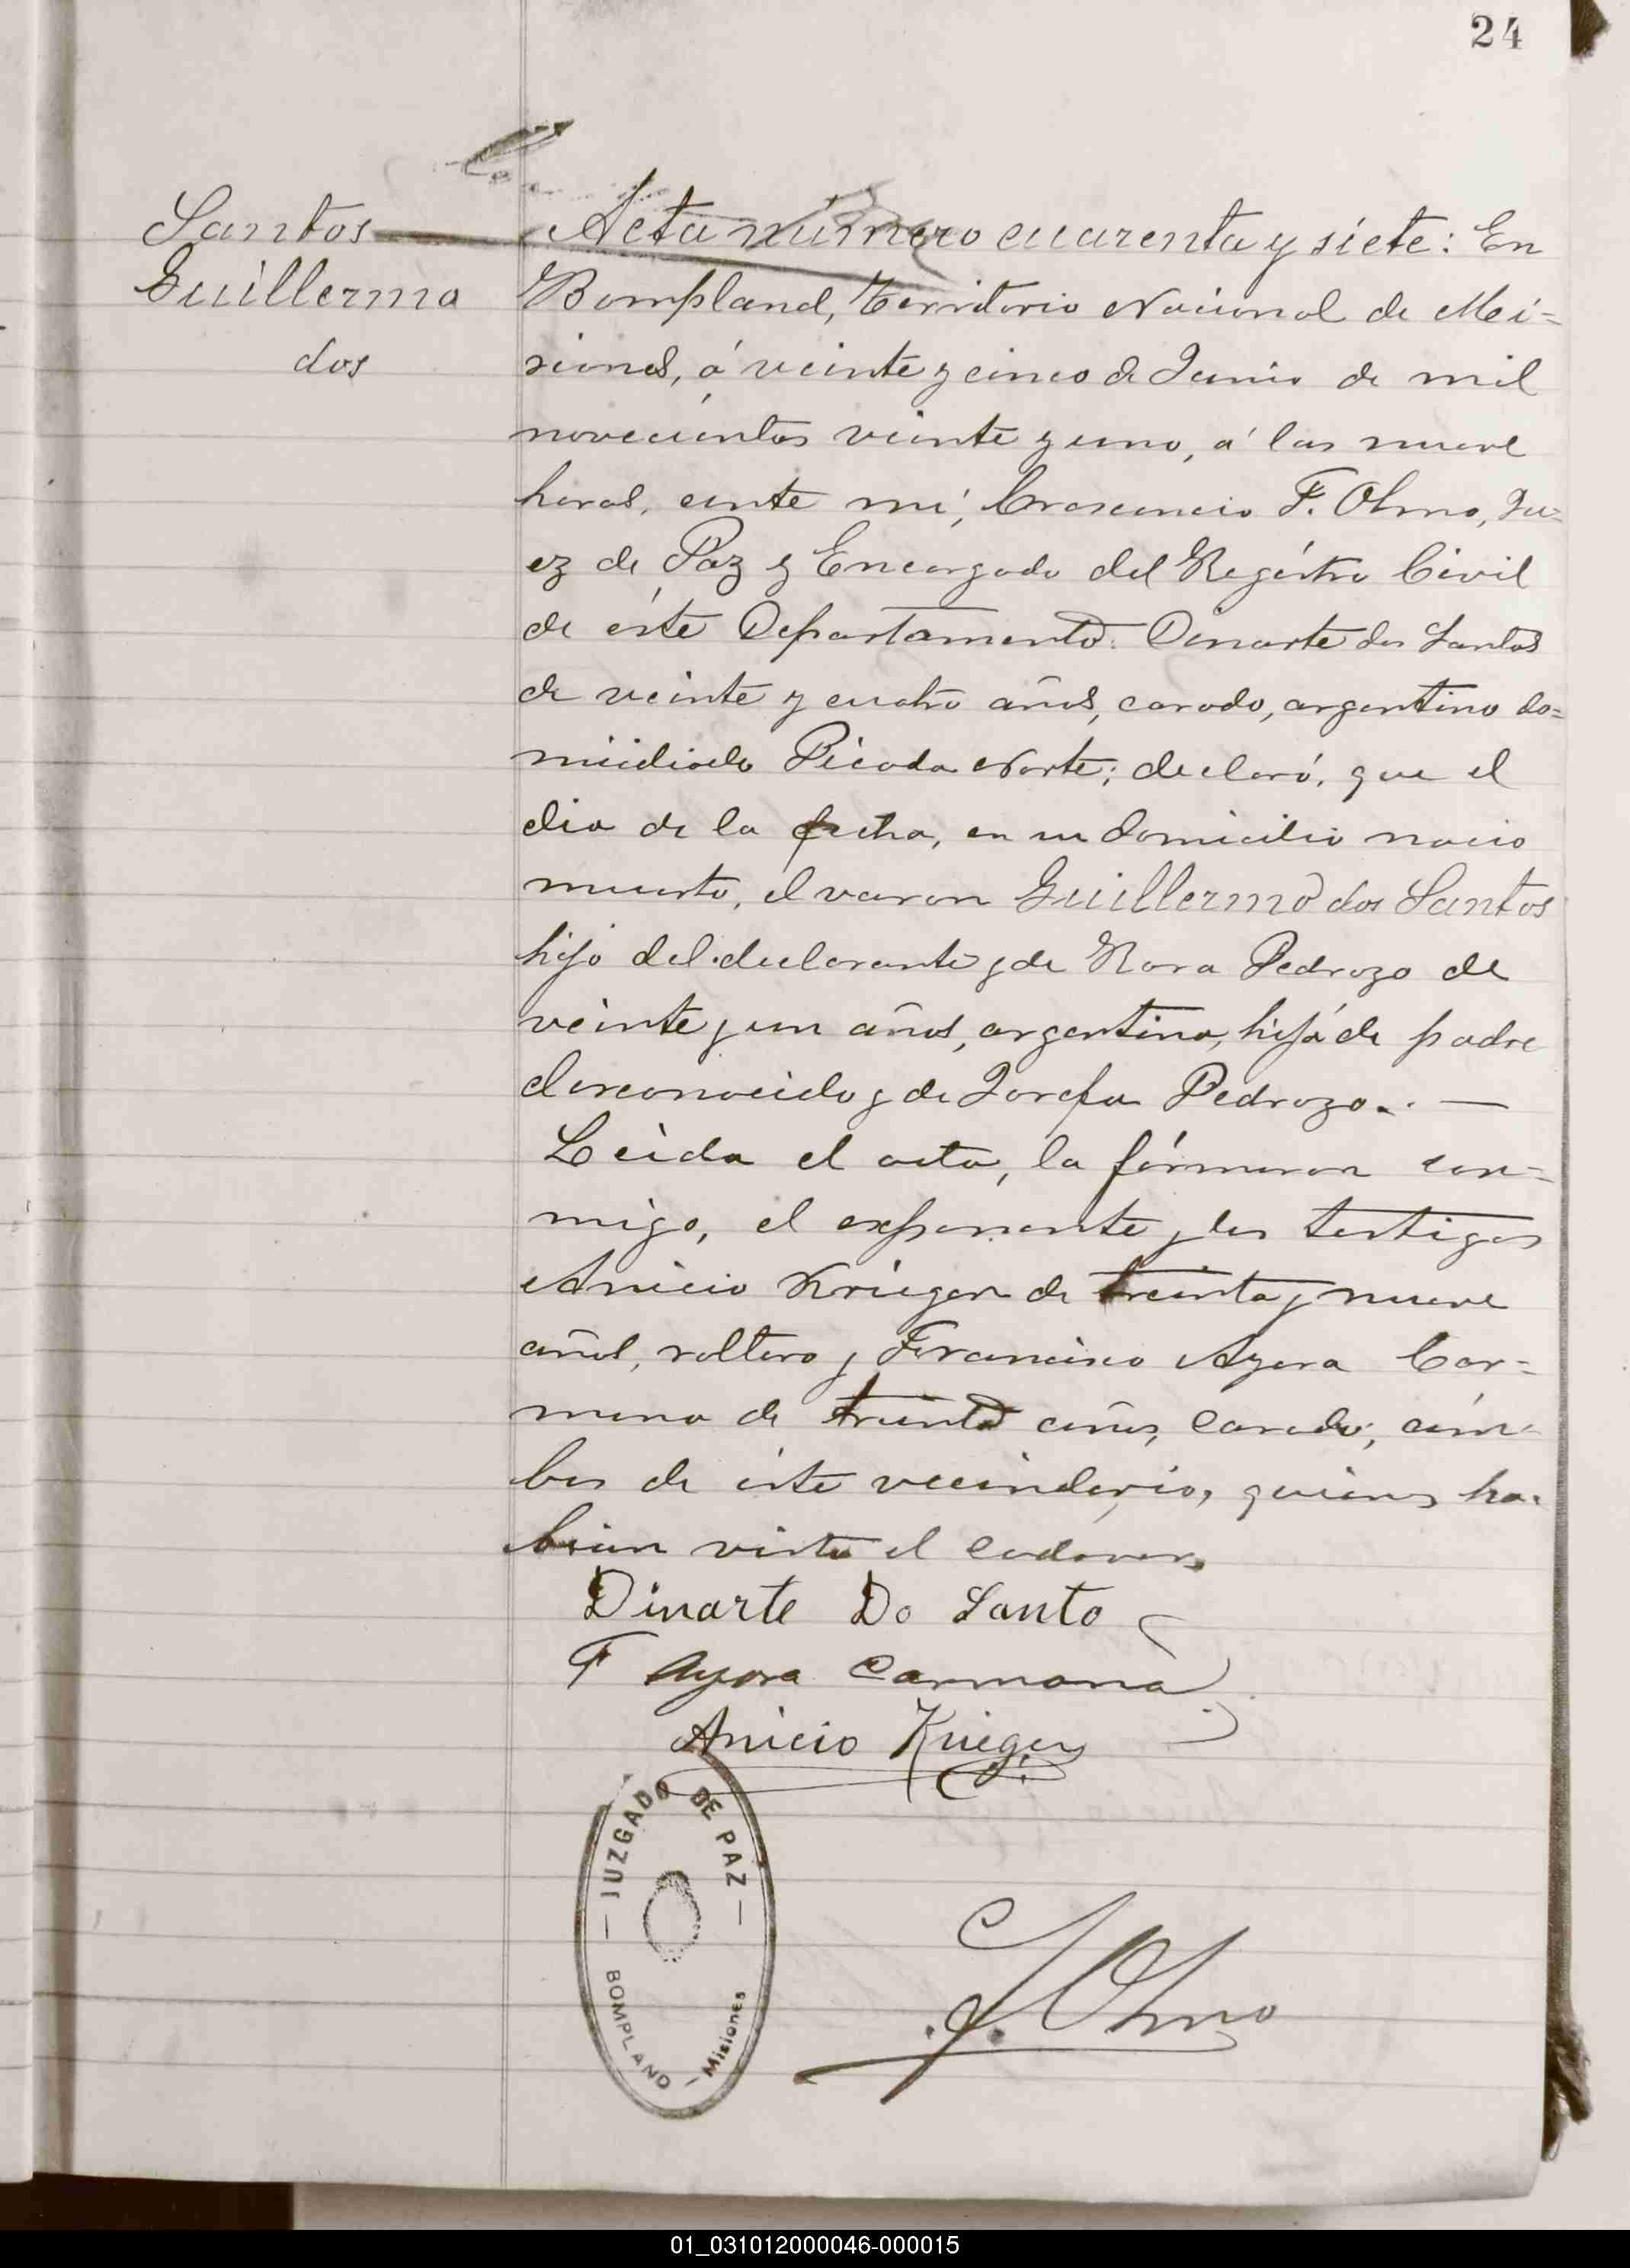 24
Santos
Guillermo
dos
Acta número cuarenta y siete: En
Bompland, Territorio Nacional de Mi=
siones, á veinte y cinco de Junio de mil
novecientos veinte y uno, á las nueve
horas, ante mí, Crescencio F. Olmo, Ju=
ez de Paz y Encargado del Registro Civil
de éste Departamento: Dinarte dos Santos
de veinte y cuatro años, casado, argentino do=
miciliado Picada Norte; declaró, que el
dia de la fecha, en su domicilio nacio
muerto, el varon Guillermo dos Santos
hijo del declarante y de Rosa Pedrozo de
veinte y un años, argentina, hija de padre
desconocido y de Josefa Pedrozo. —
Leida el acta, la firmaron con=
migo, el exponente y los testigos
Anicio Krieger de treinta y nueve
años, soltero y Francisco Ayora Car=
mona de treinta años, casado, ám=
bos de éste vecindario, quienes ha=
bian visto el cadaver.
Dinarte Do Santo
F Ayora Carmona
Anicio Krieger
JUZGADO DE PAZ
BOMPLAND - Misiones
F. Olmo
01_031012000046-000015